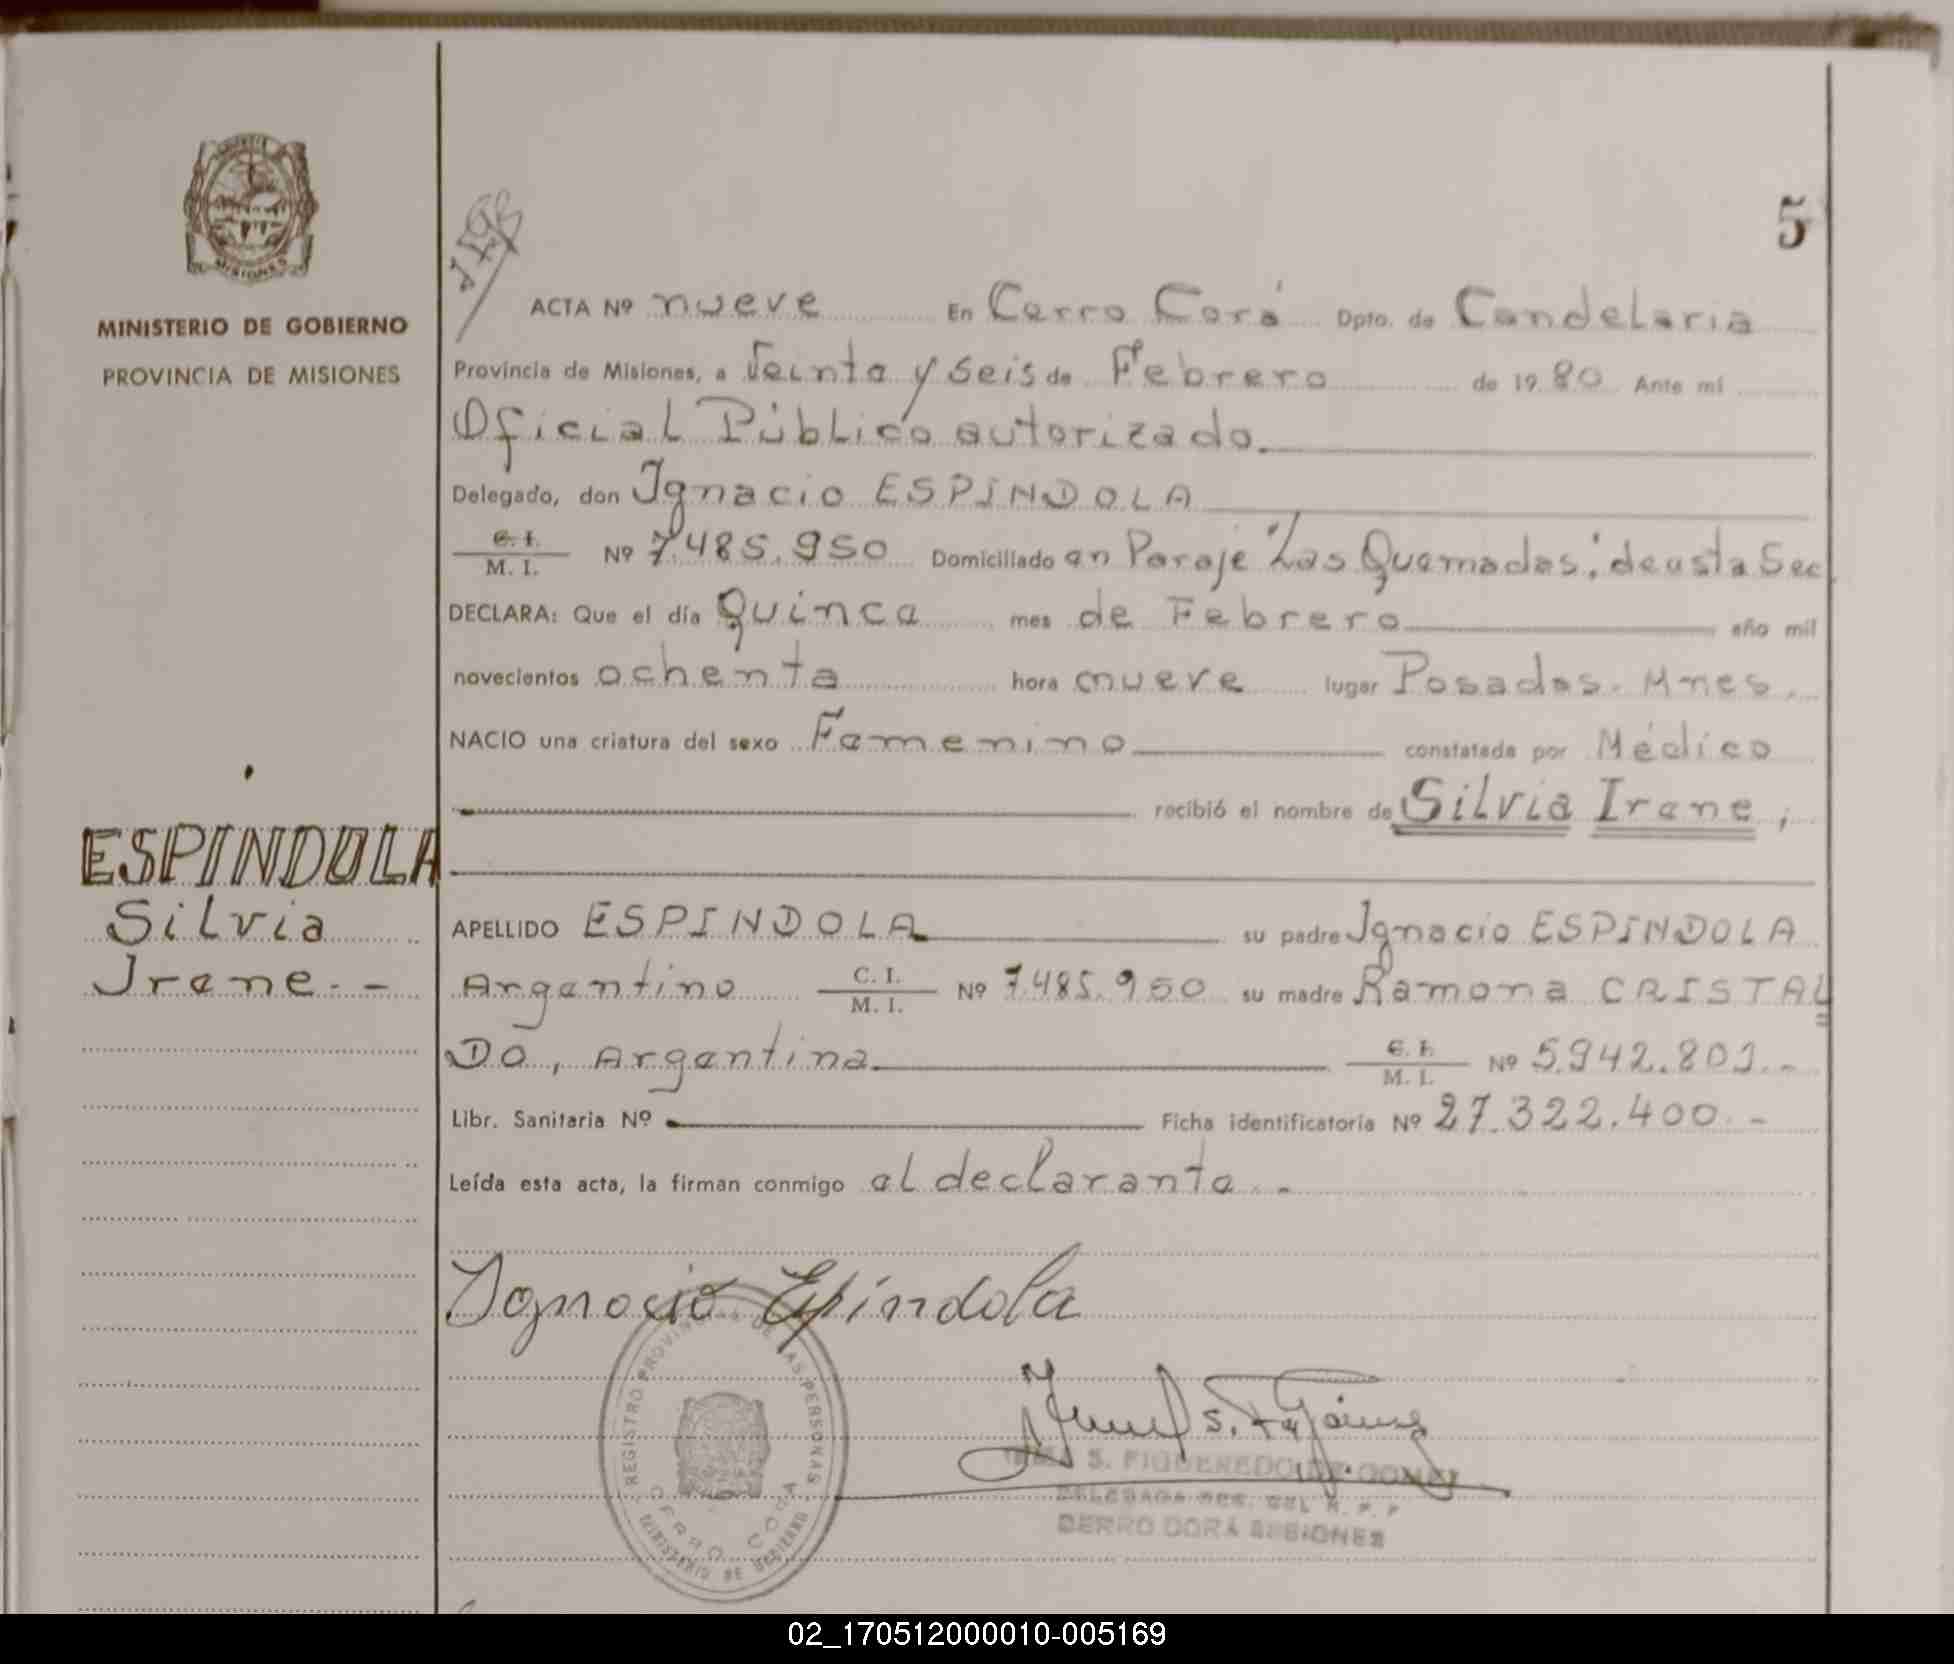 MISIONES
MINISTERIO DE GOBIERNO
PROVINCIA DE MISIONES
ESPINDOLA
Silvia
Irene.-
5
ACTA Nº nueve En Cerro Corá Dpto. de Candelaria
Provincia de Misiones, a Veinte y seis de Febrero de 1980 Ante mí
Oficial Público autorizado.
Delegado, don Ignacio ESPINDOLA
C. I. / M. I. Nº 7.485.950 Domiciliado en Paraje "Las Quemadas" de esta Sec.
DECLARA: Que el día Quince mes de Febrero año mil
novecientos ochenta hora nueve lugar Posadas. Mnes.
NACIO una criatura del sexo Femenino constatada por Médico
recibió el nombre de Silvia Irene;
APELLIDO ESPINDOLA su padre Ignacio ESPINDOLA
Argentino C. I. / M. I. Nº 7.485.950 su madre Ramona CRISTAL
DO, Argentina C. I. / M. I. Nº 5.942.801.-
Libr. Sanitaria Nº Ficha identificatoria Nº 27.322.400.-
Leída esta acta, la firman conmigo el declarante.-
Ignacio Espíndola
REGISTRO PROVINCIAL DE LAS PERSONAS
CERRO CORA
MINISTERIO DE GOBIERNO
S. FIGUEREDO DE GOMEZ
DELEGADA
CERRO CORÁ MISIONES
02_170512000010-005169